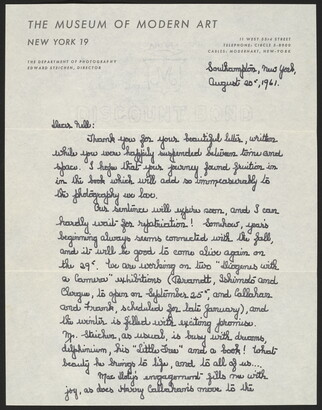 THE MUSEUM OF MODERN ART
NEW YORK 19
11 WEST 53rd STREET
TELEPHONE: CIRCLE 5-8900
CABLES: MODERNART, NEW-YORK
THE DEPARTMENT OF PHOTOGRAPHY
EDWARD STEICHEN, DIRECTOR
Southampton, New York,
August 20th, 1961.
Dear Nell:
Thank you for your beautiful letter, written
while you were happily suspended between time and
space. I hope that your journey found fruition in
in the book which will add so immeasurably to
the photography we love.
Our sentence will expire soon, and I can
hardly wait for repatriation! Somehow, years
beginning always seems connected with the fall,
and it will be good to come alive again on
the 29th. We are working on two "Diogenes with
a Camera" exhibitions (Bernott, Ishimoto and
Clergue, to open on September 25th, and Callahan
and Frank, scheduled for late January), and
the winter is filled with exciting promise.
Mr. Steichen, as usual, is busy with dreams,
delphinium, his "Little Tree" and a book! What
beauty he brings to life, and to all of us....
engagement fills me with
joy, as does Harry Callahan's move to the